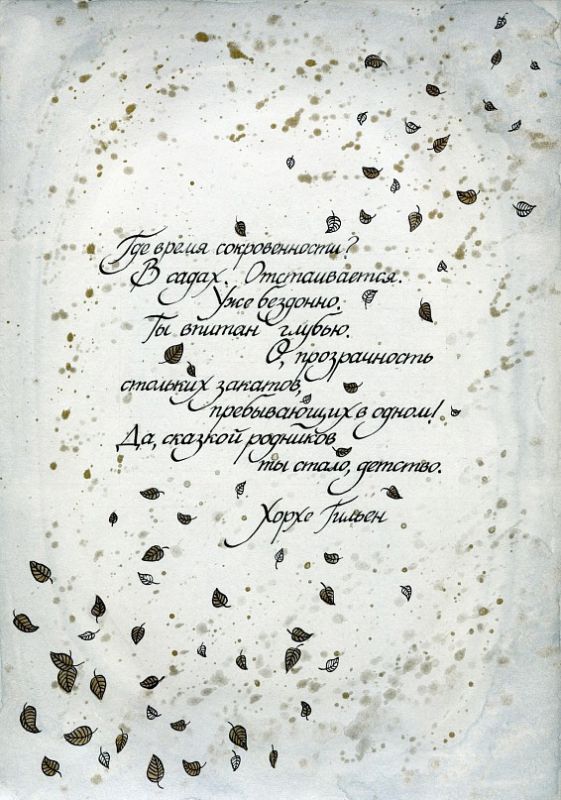 Где время сокровенности?
В садах. Отстаивается.
Уже бездонно.
Ты впитан глубью.
О, прозрачность
стольких закатов,
пребывающих в одном!
Да, сказкой родников
ты стало, детство.
Хорхе Гильен